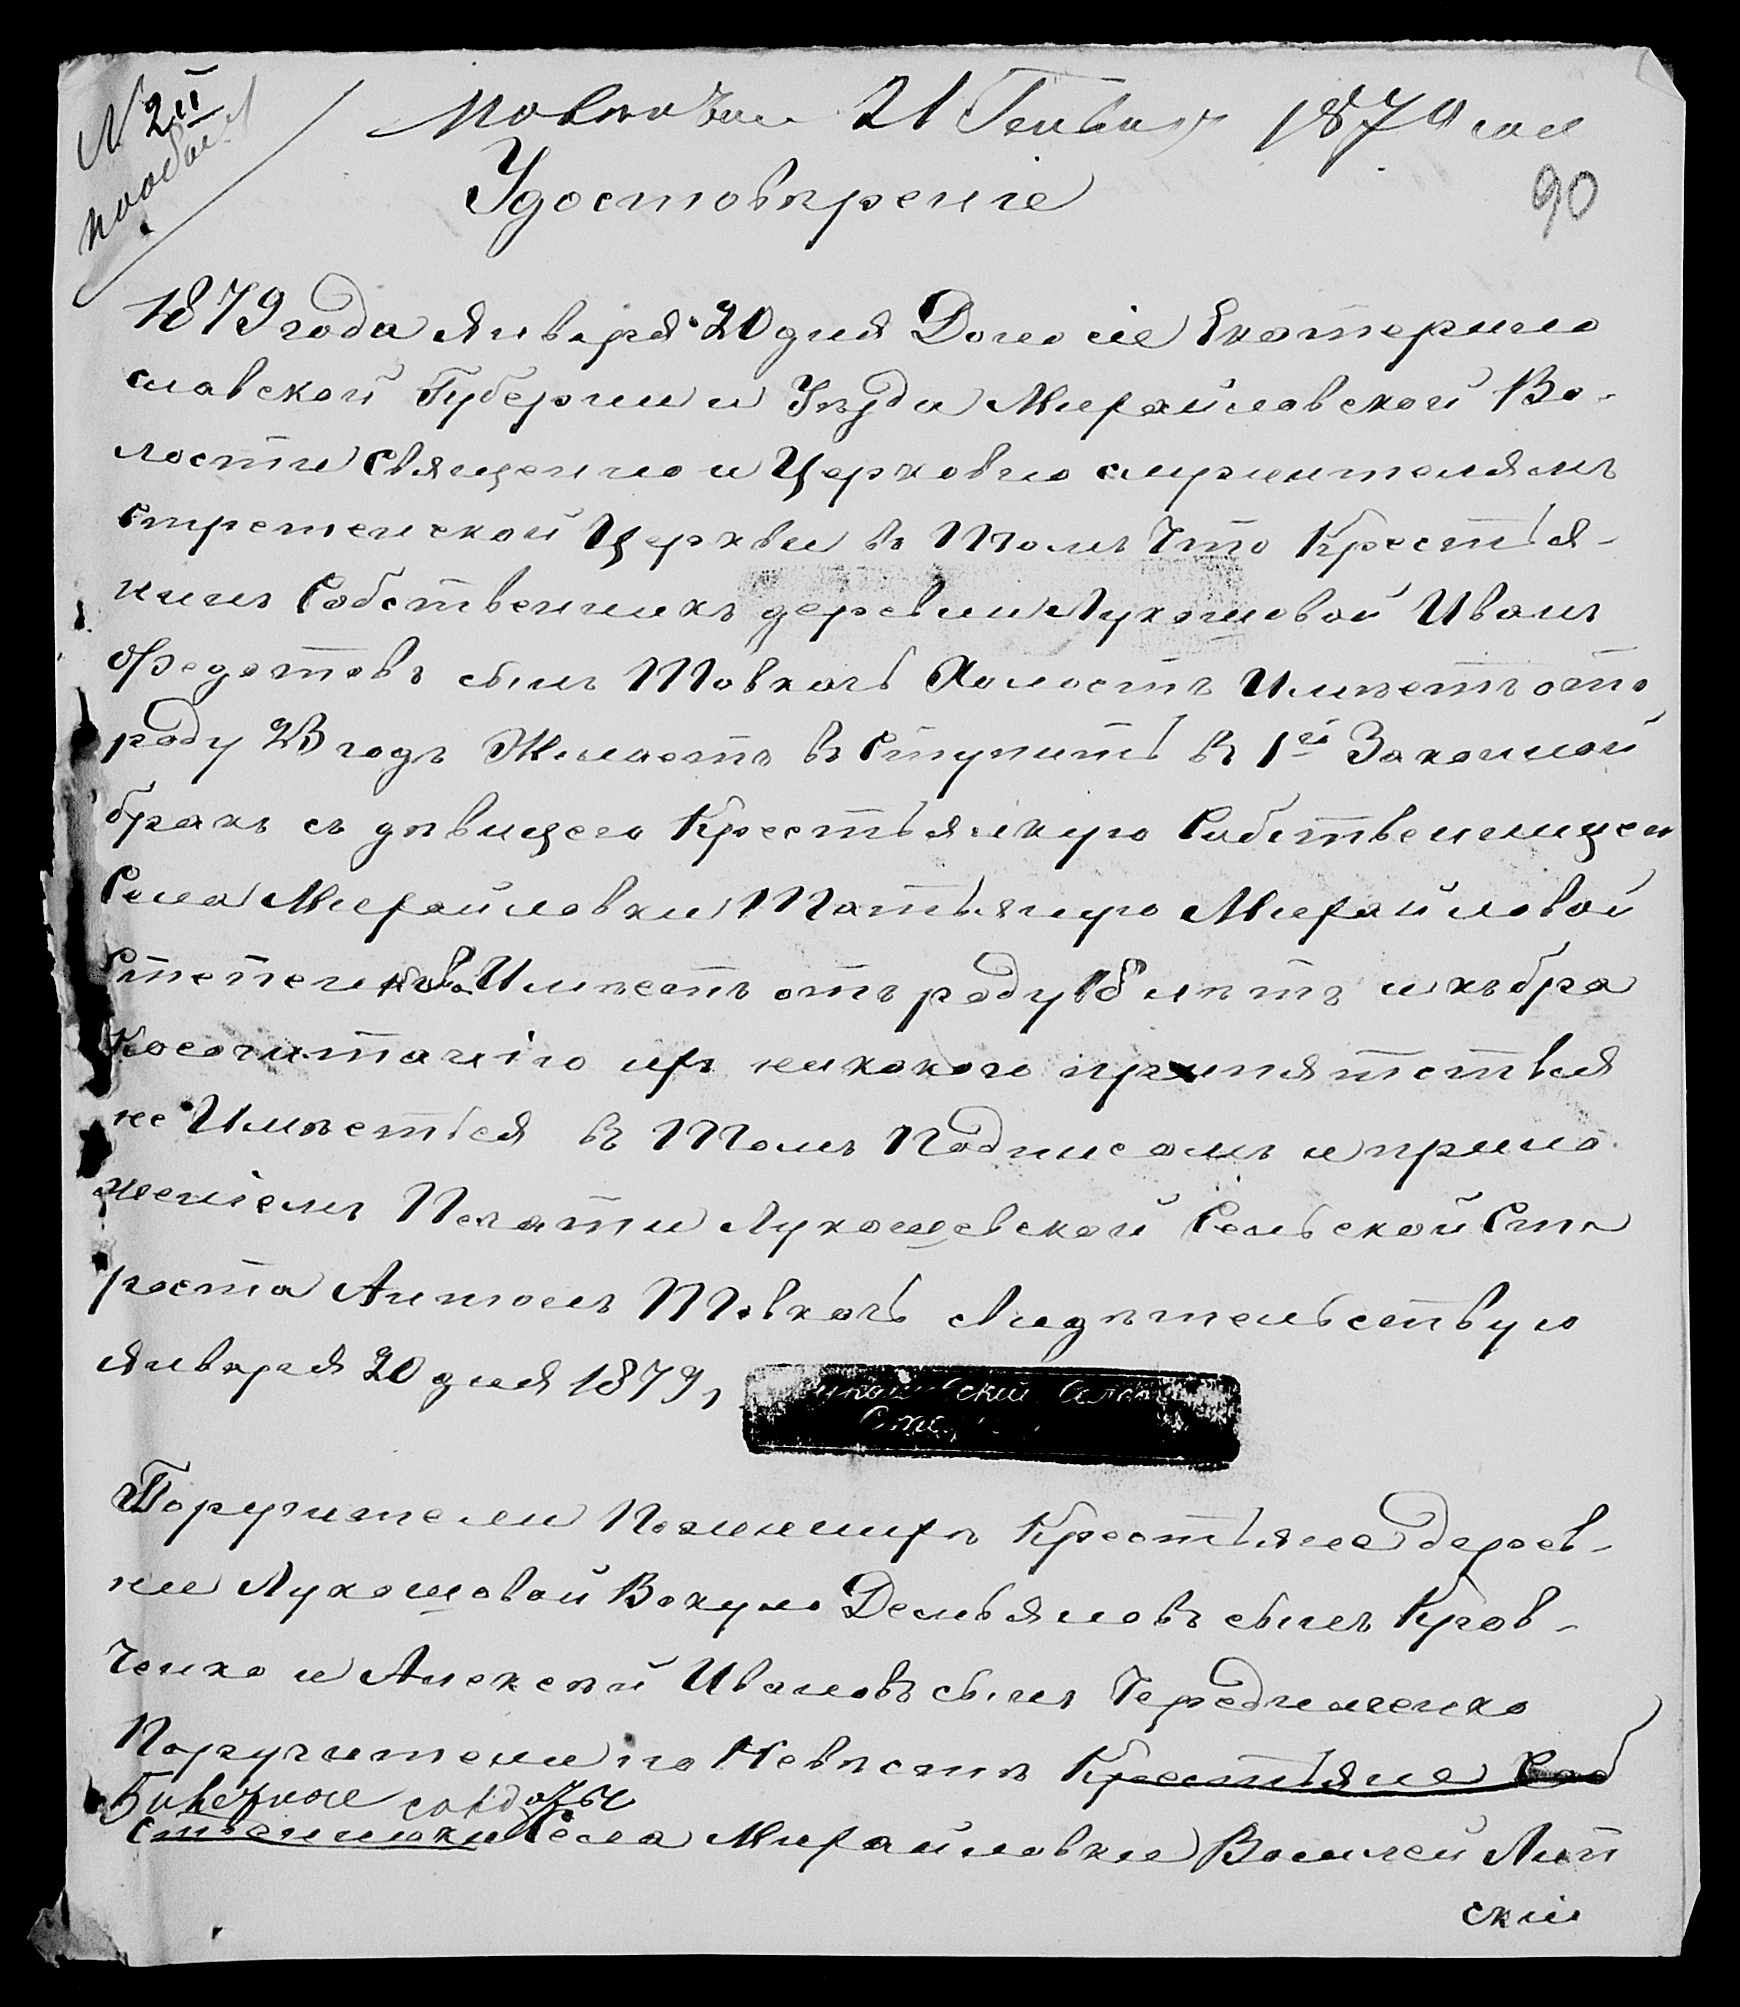 N 2й
Повѣнчан 21 Генваря 1879 года
Удостовѣреніе
90
1879 года Января 20 дня Дано сіе Екатерино
славской Губернии и Уѣзда Михайловской Во-
лости Священно и Церковно служителямъ
Стретенской Церкви въ Томъ Что Крестья-
нинъ Собственникъ деревни Лукашовой Иванъ
Федотовъ сынъ Товкачь Холостъ Имѣетъ отъ
роду 23 годъ Желаетъ въ Ступить въ 1й Законной
бракъ съ дѣвицею Крестьянкую Собственницею
Села Михайловки Татьяную Михайловой
Имѣетъ отъ роду 18 лѣтъ и къ бра
Косочитанію ихъ никакого препятствия
не Имѣеться въ Томъ Подписомъ и прило
женіемъ Печати Лукашевской Сельской Ста
роста Антонъ Товкачь свидѣтельствую
Января 20 дня 1879,
Поручители По женихѣ Крестьяне дерев-
ни Лукашовой Вакуло Демьяновъ сынъ Крав-
ченко и Алексѣй Ивановъ сынъ Чередниченко
Поручители по Невѣстѣ Крестьяне Соб
солдаты
ственники Села Михайловки Василей Лип
скій